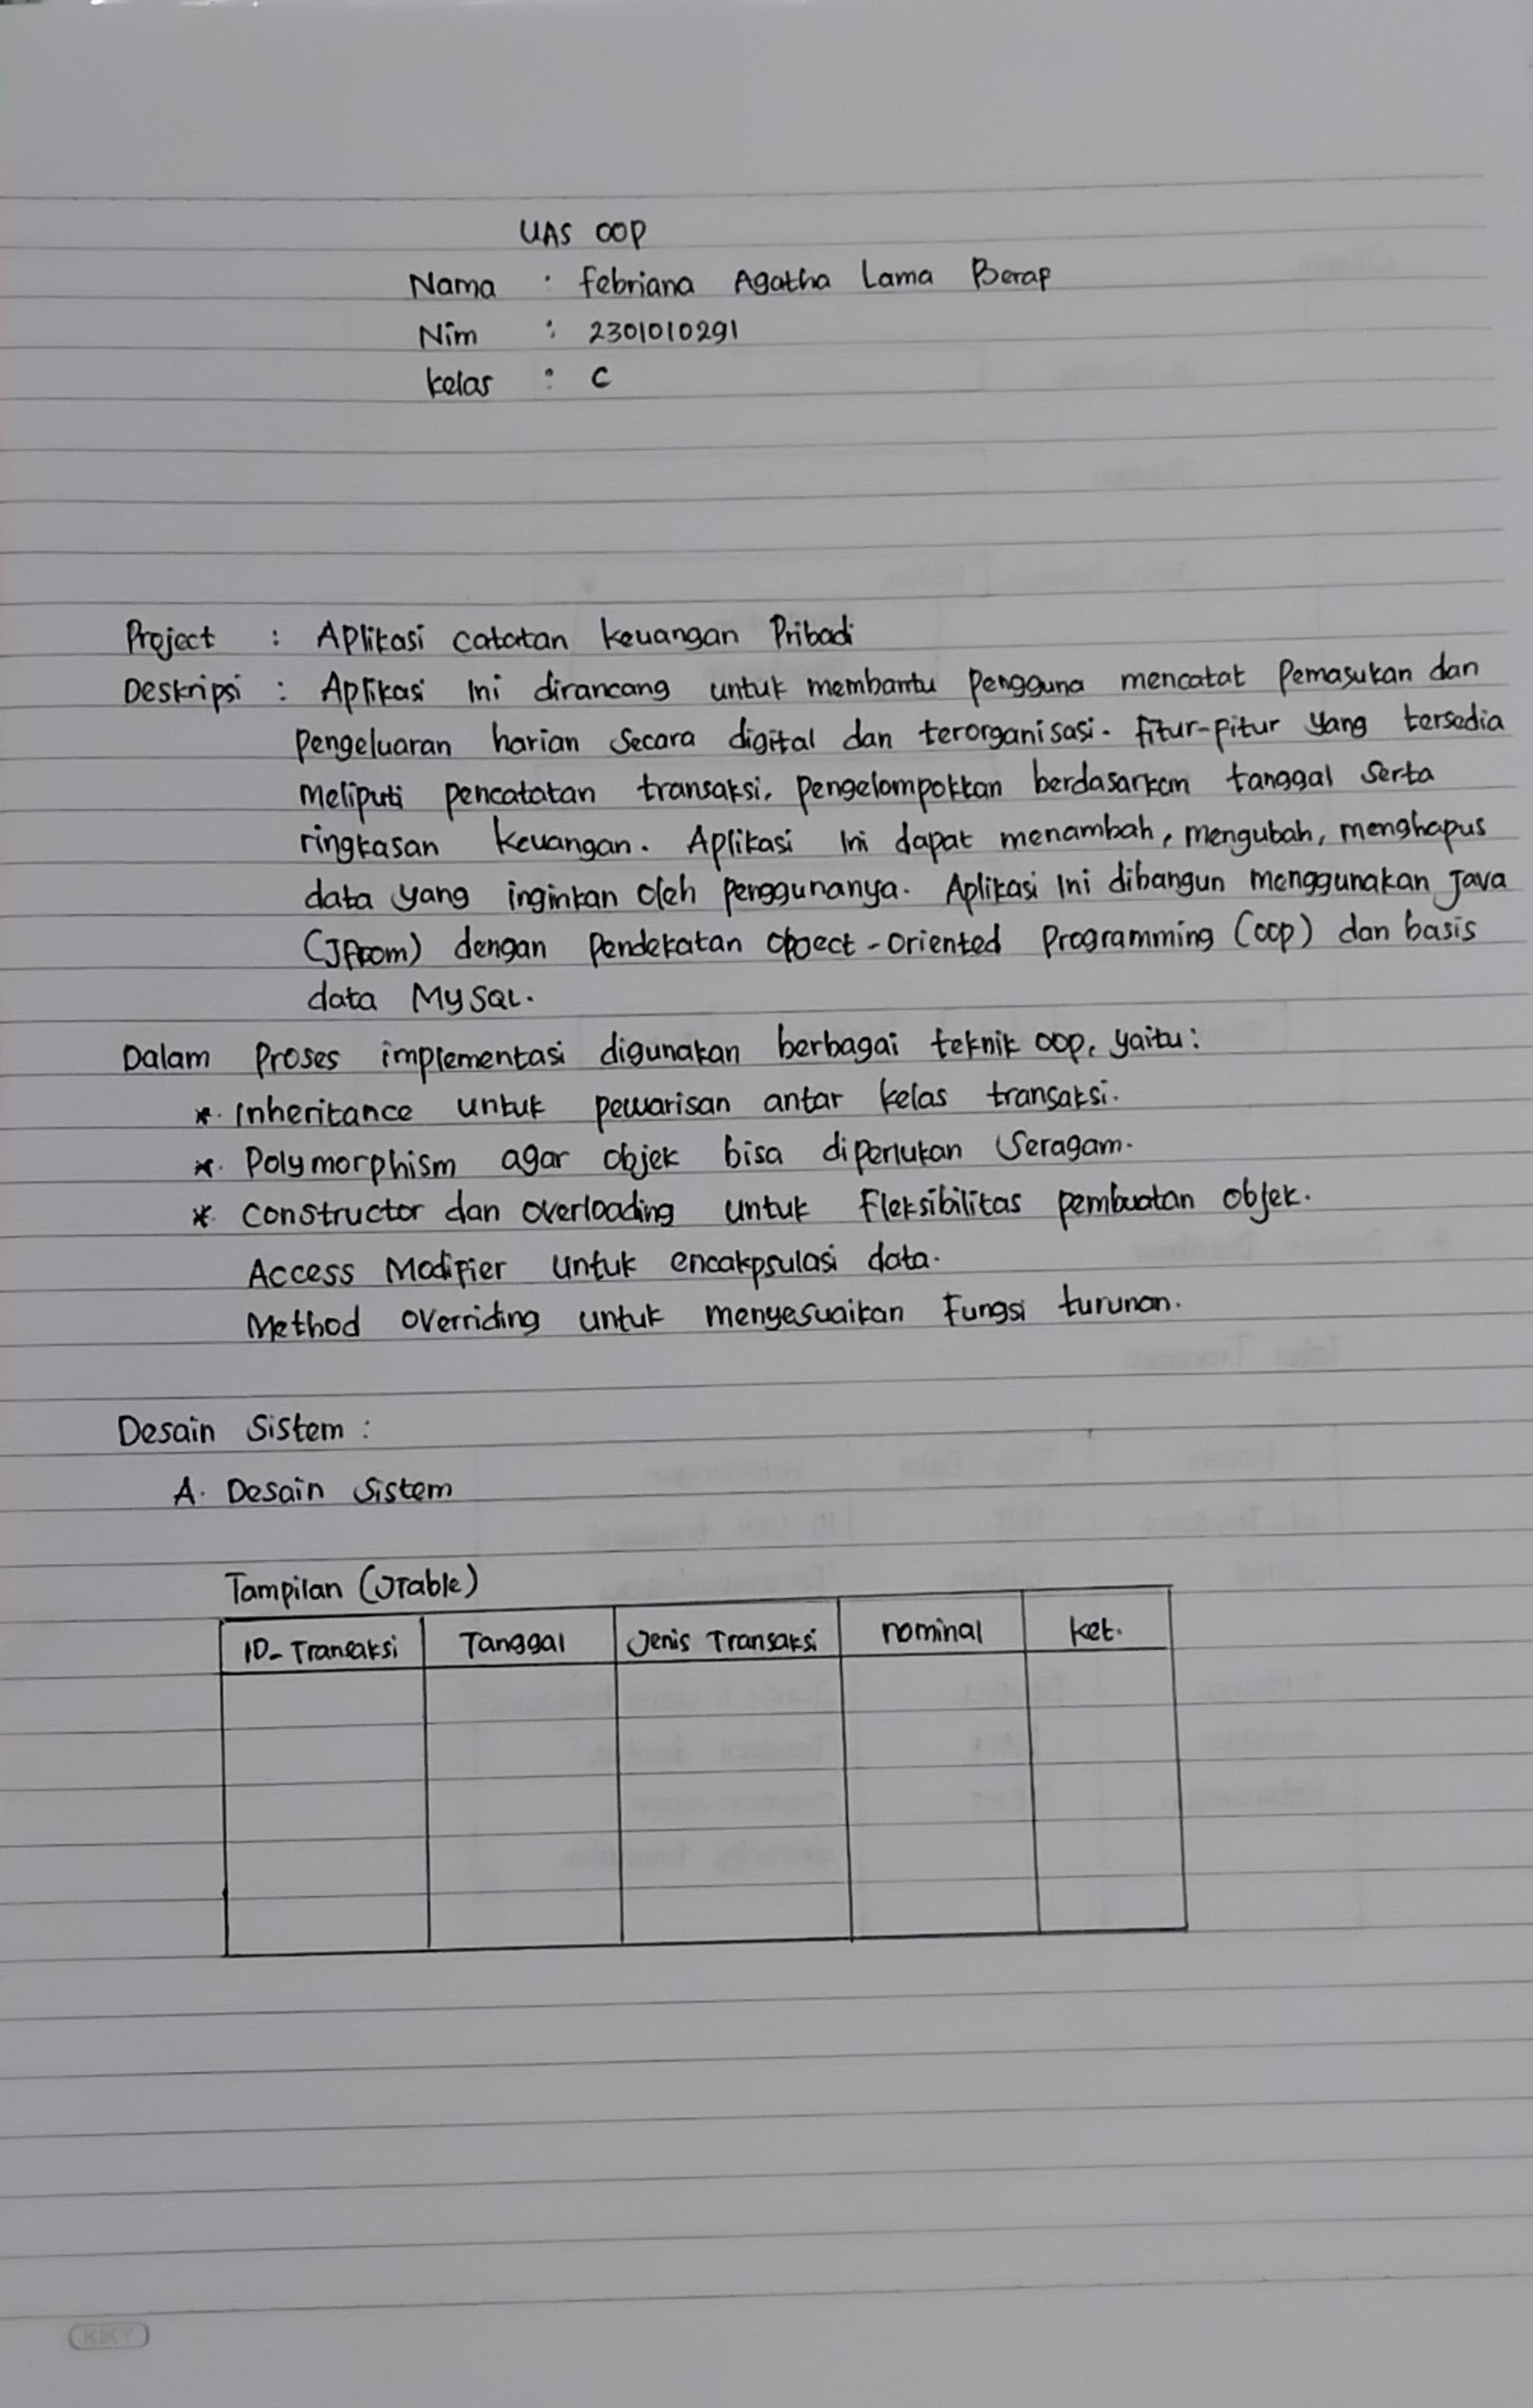 UAS OOP
Nama : Febriana Agatha Lama Berap
Nim : 2301010291
Kelas : C
Project : Aplikasi catatan keuangan Pribadi
Deskripsi : Aplikasi Ini dirancang untuk membantu pengguna mencatat Pemasukan dan
pengeluaran harian Secara digital dan terorganisasi. Fitur-Fitur yang tersedia
meliputi pencatatan transaksi, pengelompokkan berdasarkan tanggal Serta
ringkasan keuangan. Aplikasi Ini dapat menambah, mengubah, menghapus
data yang inginkan oleh penggunanya. Aplikasi Ini dibangun menggunakan Java
dengan Pendekatan Object-Oriented Programming (OOP) dan basis
data MySQL.
Dalam Proses implementasi digunakan berbagai teknik OOP, yaitu:
*. Inheritance untuk pewarisan antar kelas transaksi.
*. Polymorphism agar objek bisa diperlukan Seragam.
*. Constructor dan overloading untuk Fleksibilitas pembuatan objek.
Access Modifier untuk encakpsulasi data.
Method overriding untuk menyesuaikan Fungsi turunan.
Desain Sistem :
A. Desain Sistem
Tampilan (JTable)
ID_Transaksi Tanggal Jenis Transaksi nominal ket.
KIKY